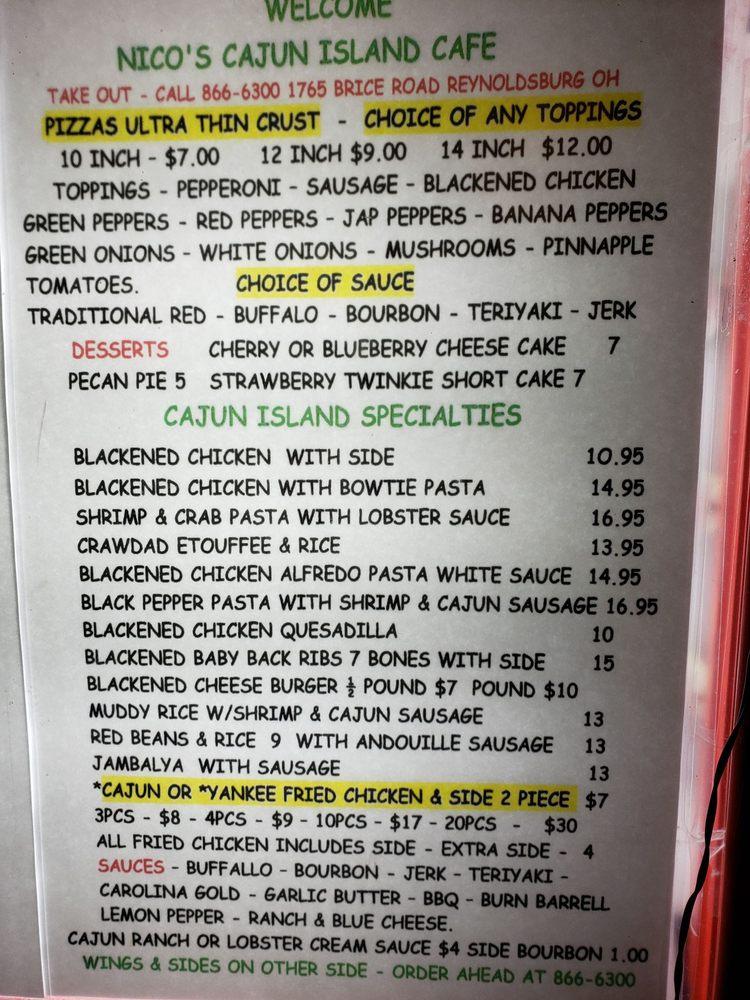 WELCOME
NICO'S CAJUN ISLAND CAFE
TAKE OUT - CALL 866-6300 1765 BRICE ROAD REYNOLDSBURG OH
PIZZAS ULTRA THIN CRUST - CHOICE OF ANY TOPPINGS
10 INCH - $7.00 12 INCH $9.00 14 INCH $12.00
TOPPINGS - PEPPERONI - SAUSAGE - BLACKENED CHICKEN
GREEN PEPPERS - RED PEPPERS - JAP PEPPERS - BANANA PEPPERS
GREEN ONIONS - WHITE ONIONS - MUSHROOMS - PINNAPPLE
TOMATOES. CHOICE OF SAUCE
TRADITIONAL RED - BUFFALO - BOURBON - TERIYAKI - JERK
DESSERTS CHERRY OR BLUEBERRY CHEESE CAKE 7
PECAN PIE 5 STRAWBERRY TWINKIE SHORT CAKE 7
CAJUN ISLAND SPECIALTIES
BLACKENED CHICKEN WITH SIDE 10.95
BLACKENED CHICKEN WITH BOWTIE PASTA 14.95
SHRIMP & CRAB PASTA WITH LOBSTER SAUCE 16.95
CRAWDAD ETOUFFEE & RICE 13.95
BLACKENED CHICKEN ALFREDO PASTA WHITE SAUCE 14.95
BLACK PEPPER PASTA WITH SHRIMP & CAJUN SAUSAGE 16.95
BLACKENED CHICKEN QUESADILLA 10
BLACKENED BABY BACK RIBS 7 BONES WITH SIDE 15
BLACKENED CHEESE BURGER ½ POUND $7 POUND $10
MUDDY RICE W/SHRIMP & CAJUN SAUSAGE 13
RED BEANS & RICE 9 WITH ANDOUILLE SAUSAGE 13
JAMBALYA WITH SAUSAGE 13
*CAJUN OR *YANKEE FRIED CHICKEN & SIDE 2 PIECE $7
3PCS - $8 - 4PCS - $9 - 10PCS - $17 - 20PCS - $30
ALL FRIED CHICKEN INCLUDES SIDE - EXTRA SIDE - 4
SAUCES - BUFFALLO - BOURBON - JERK - TERIYAKI -
CAROLINA GOLD - GARLIC BUTTER - BBQ - BURN BARRELL
LEMON PEPPER - RANCH & BLUE CHEESE.
CAJUN RANCH OR LOBSTER CREAM SAUCE $4 SIDE BOURBON 1.00
WINGS & SIDES ON OTHER SIDE - ORDER AHEAD AT 866-6300